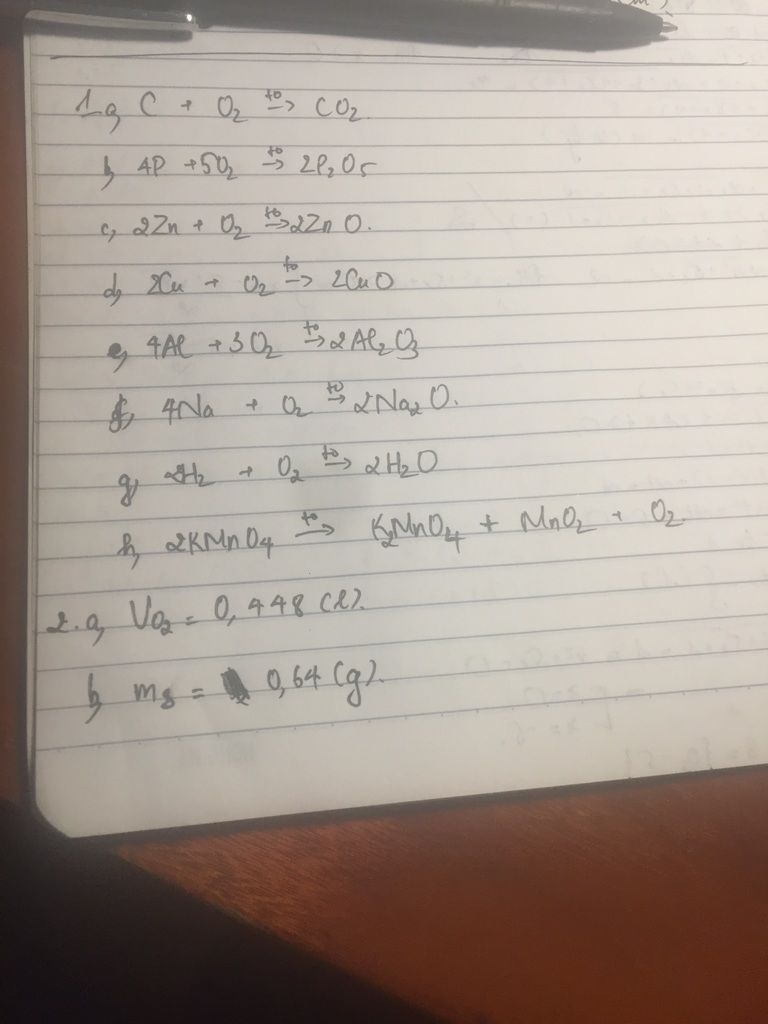 1.a, C + O₂ t°→ CO₂.
b, 4P + 5O₂ t°→ 2P₂O₅
c, 2Zn + O₂ t°→ 2ZnO.
d, 2Cu + O₂ t°→ 2CuO
e, 4Al + 3O₂ t°→ 2Al₂O₃
f, 4Na + O₂ t°→ 2Na₂O.
g, 2H₂ + O₂ t°→ 2H₂O
h, 2KMnO₄ t°→ K₂MnO₄ + MnO₂ + O₂
2.a, VO₂ = 0,448 (l).
b, mS = 0,64 (g).